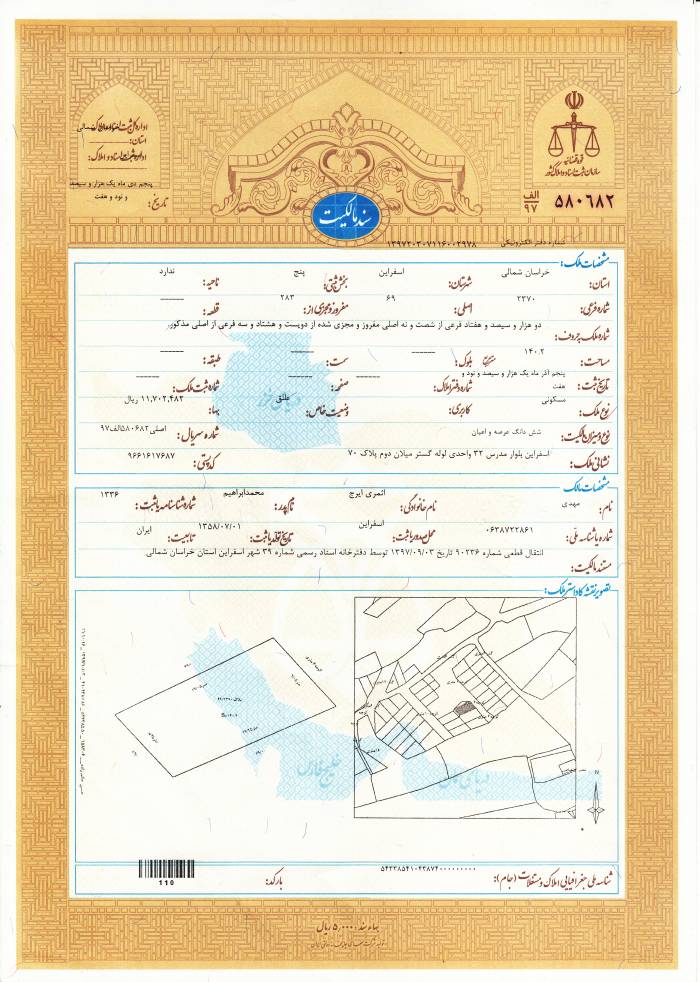 قوه قضائیه
سازمان ثبت اسناد و املاک کشور
الف
۹۷
۵۸۰۶۸۲
استان:
پنجم دی ماه یک هزار و سیصد
و نود و هفت
تاریخ:
سند مالکیت
شماره دفتر الکترونیکی ۱۳۹۷۲۰۳۰۷۱۱۶۰۰۲۹۷۸
مشخصات ملک:
استان: خراسان شمالی شهرستان: اسفراین بخش ثبتی: پنج ناحیه: ندارد
شماره فرعی: ۲۳۷۰ اصلی: ۶۹ مفروز و مجزی از: ۲۸۳ قطعه: ------
شماره ملک بحروف: دو هزار و سیصد و هفتاد فرعی از شصت و نه اصلی مفروز و مجزی شده از دویست و هشتاد و سه فرعی از اصلی مذکور.
مساحت: ۱۴۰.۲ مترمربع بلوک: ------ سمت: ------ طبقه: ------
تاریخ ثبت: پنجم آذر ماه یک هزار و سیصد و نود و هفت شماره دفتر املاک: ------ صفحه: ------ شماره ثبت ملک: ------
نوع ملک: مسکونی کاربری: وضعیت خاص: طلق بها: ۱۱,۷۰۲,۴۸۲ ریال
نوع و میزان مالکیت: شش دانگ عرصه و اعیان شماره سریال: اصلی۵۸۰۶۸۲الف۹۷
نشانی ملک: اسفراین بلوار مدرس ۳۲ واحدی لوله گستر میلان دوم پلاک ۷۰ کد پستی: ۹۶۶۱۶۱۷۶۸۷
مشخصات مالک:
نام: مهدی نام خانوادگی: اثمری ایرج نام پدر: محمدابراهیم شماره شناسنامه یا ثبت: ۱۳۳۶
شماره یا شناسه ملی: ۰۶۳۸۷۲۲۸۶۱ محل صدور یا ثبت: اسفراین تاریخ تولد یا ثبت: ۱۳۵۸/۰۷/۰۱ تابعیت: ایران
مستند مالکیت: انتقال قطعی شماره ۹۰۲۳۶ تاریخ ۱۳۹۷/۰۹/۰۳ توسط دفترخانه اسناد رسمی شماره ۳۹ شهر اسفراین استان خراسان شمالی.
تصویر نقشه کاداستر ملک:
دریای خزر
خلیج فارس
N
شناسه ملی جغرافیایی املاک و مستغلات (جام): ۵۴۳۳۸۵۴۱۰۴۳۸۷۴۰۰۰۰۰۰۰۰۰
بارکد: 110
بهاء سند: ۵,۰۰۰ ریال